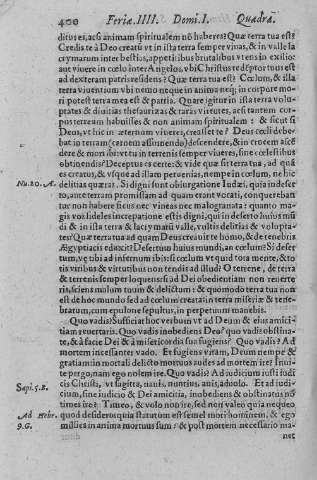 400 Feriæ. IIII. Domi. I. Quadrā.
ditus es, ac si animam spiritualem nō haberes? Quæ terra tua est?
Credis te à Deo creatū vt in ista terra semper vivas, & in valle la
crymarum inter bestios, appetitibus brutalibus vt ens in exilio:
aut vivere in cœlo inter Angelos, vbi Christus redēptor tuus est
ad dexteram patris residens? Quæ terra tua est? Cœlum, & illa
terra viventium vbi nemo neque in anima neq; in corpore mo-
ri potest terra mea est & patria. Quare igitur in ista terra volu-
ptates & divitias thesaurizas & raras vivere, ac si tantum cor-
pus terream habuisses & non animam spiritualem? & sicut si
Deus, vt hic in æternum viveres, creasset te? Deus cœli debe-
bat in terram (carnem assumendo) descendere, & in crucem ascē
dere & mori ibi: vt tu in terrenis semper viveres, sine cœlestibus
obtinendis? Deceptus es certe: & vide quæ sit terra tua, ad quā
es creatus, & vsque ad illam pervenias, nempe in cœlum, ne hic
Nu. 20. A. delitias quæras. Si digni sunt obiurgatione Iudæi, quia in deser
to, ante terram promissam ad quam erant vocati, conquereban
tur non habere ficus nec vineas nec malogranata: quanto ma-
gis vos fideles increpatione estis digni, qui in deserto huius mū
di & in ista terra & lacrymarū valle, vultis delitias & volupta-
tes? Quæ terra tua ad quam Deus creavit te homo, & de tenebris
Ægyptiacis eduxit? Desertum huius mundi, an cœlum? Si deser
tum, ve tibi ad infernum ibis: si cœlum vt quid tota mente, & to
tis viribus & virtutibus non tendis ad illud? O terrene, de terra
& terrenis semper loqueris: si ad Dei obedientiam non reverte
ris, sciens malum tuum & delictum: & quomodo terra tua non
est de hoc mundo sed ad cœlum creata: in terra miseriæ & tene-
brarum, cum epulone sepultus, in perpetuum manebis.
Quo vadis? Sufficiat hoc verbum vt ad Deum & eius amici-
tiam revertaris. Quo vadis inobediens Deo? quo vadis obstina-
te, & à facie Dei & à misericordis sua fugiens? Quo vadis? Ad
mortem incessanter vado. Et fugiens vitam, Deum nempe &
gratiam in mortali delicto mortuus iudex ad mortem ire? Invi-
te pergo, nam ego nolem ire. Quo vadis? Ad iudicium iusti iudi
Sapi. 5. B. cis Christi, vt sagitta, navis, nuntius, avis, advolo. Et ad iudi-
cium, sine iudicio & Dei amicitia, inobediens & obstinatus nō
times ire? Timeo, & volo non ire, sed non valeo quia nequeo
Ad Hebr. quod desidero: quia statutum est semel mori hominem, & ego
9. G. millies in anima mortuus sum: & post mortem necessario ma-
net